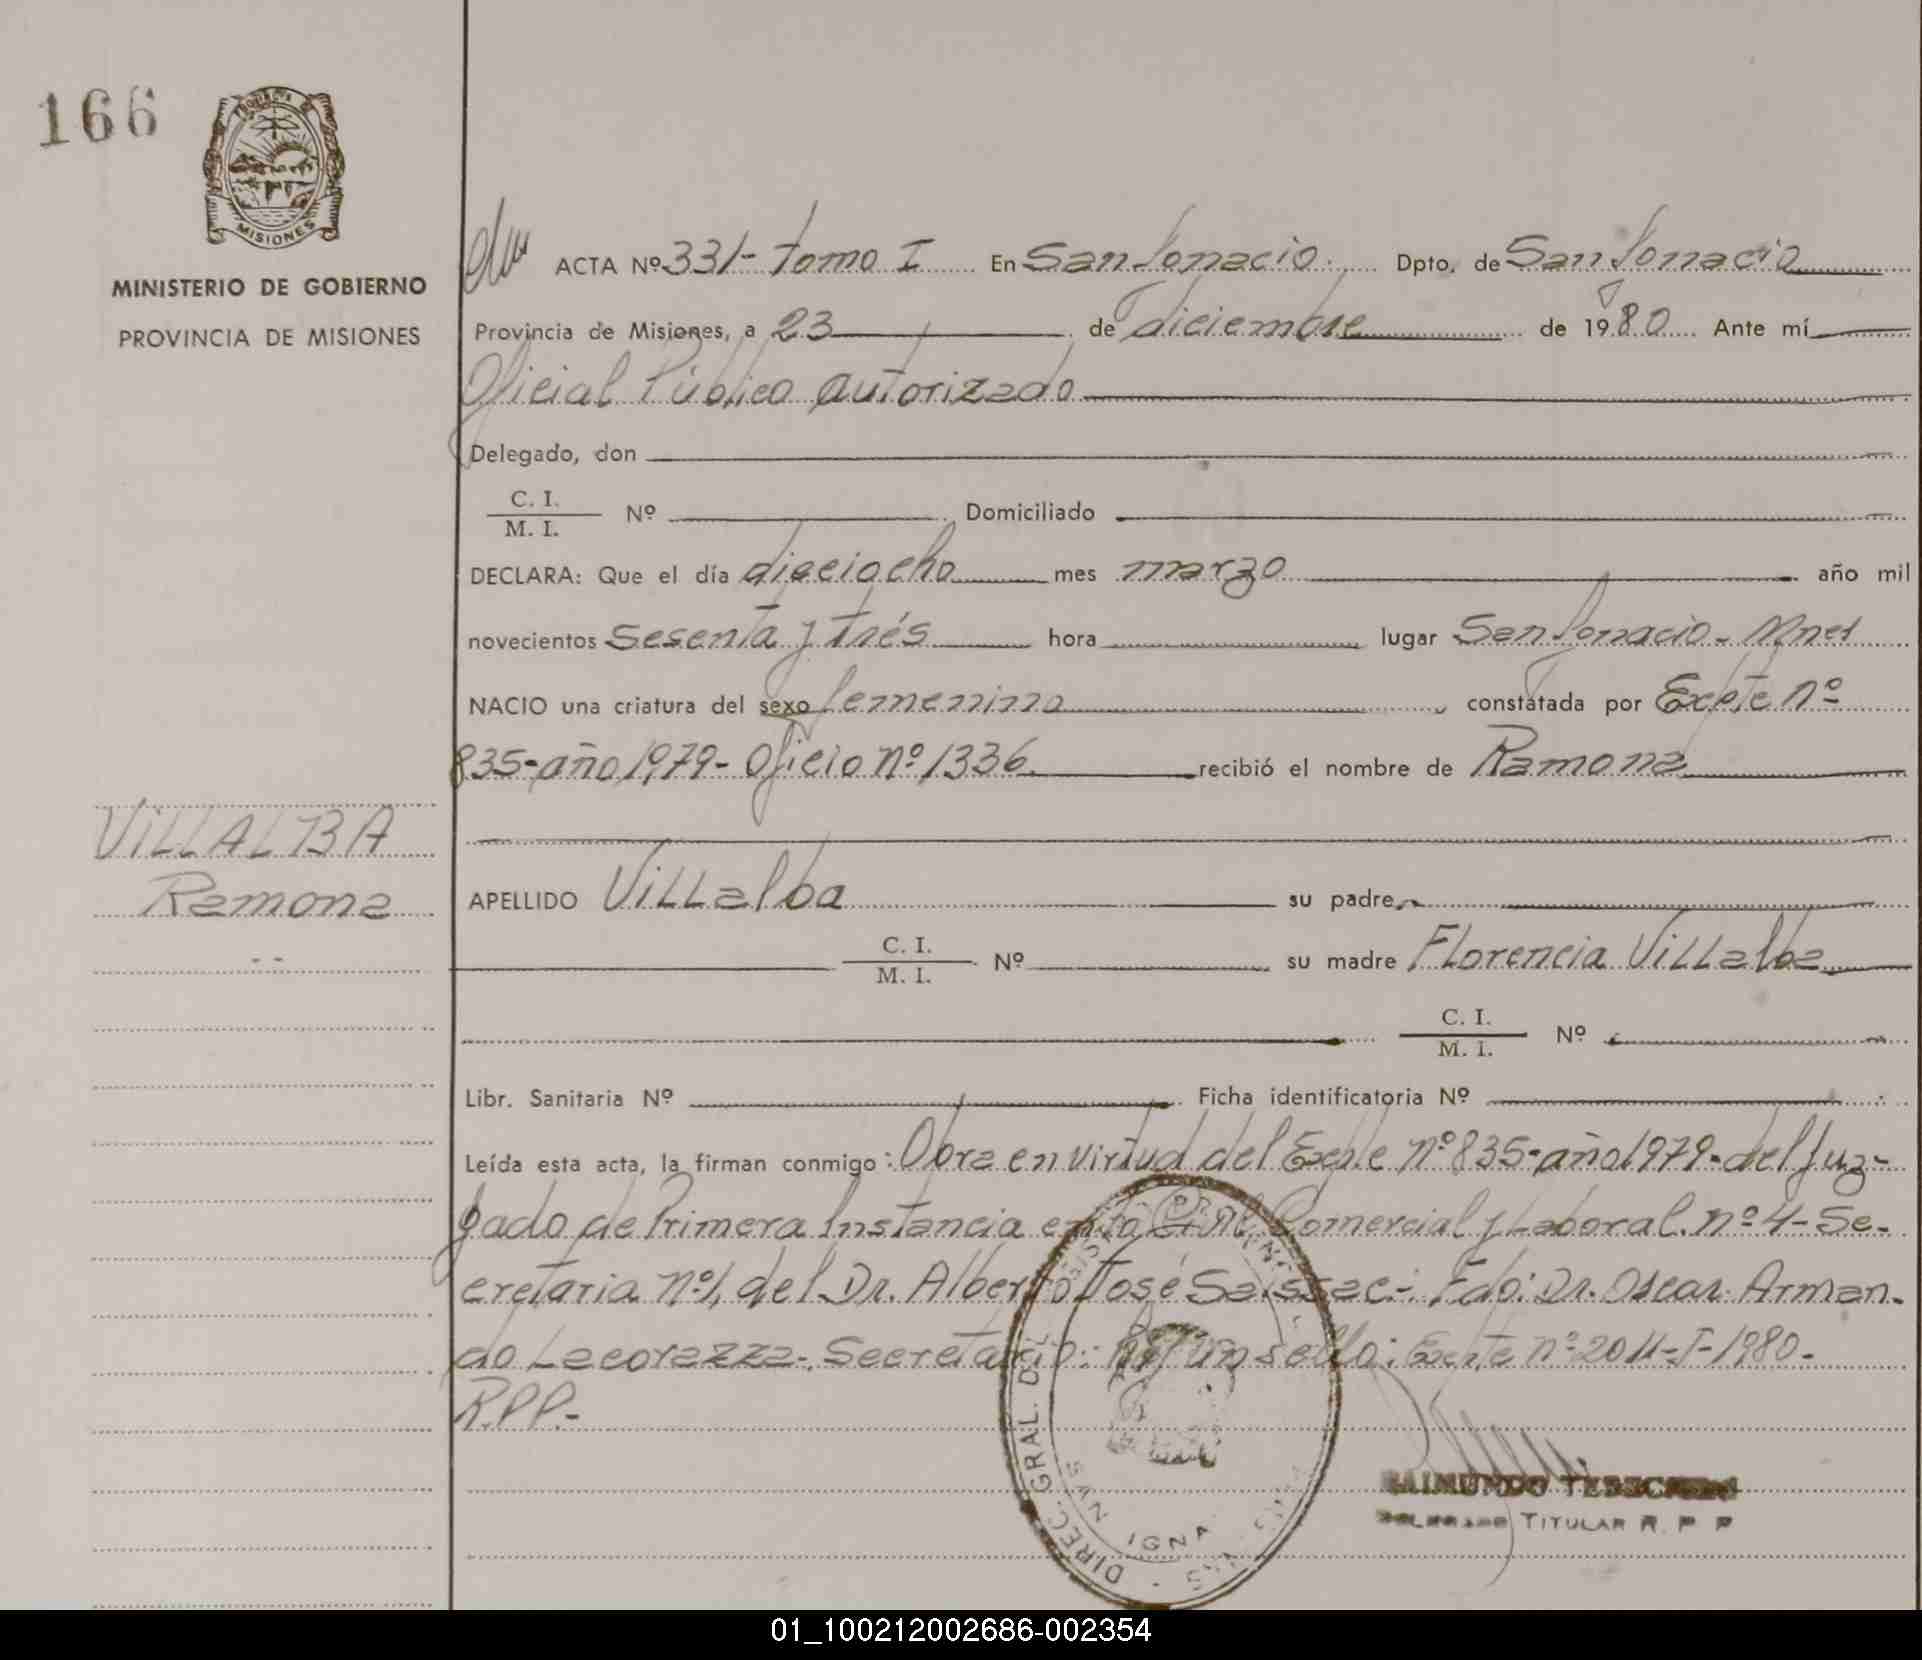 166
PROVINCIA DE
MISIONES
MINISTERIO DE GOBIERNO
PROVINCIA DE MISIONES
ACTA Nº 331- tomo I En San Ignacio. Dpto. de San Ignacio
Provincia de Misiones, a 23 de diciembre de 1980 Ante mí
Oficial Público autorizado
Delegado, don
C. I.
M. I.
Nº Domiciliado
DECLARA: Que el día dieciocho mes marzo año mil
novecientos sesenta y trés hora lugar San Ignacio - Mnes
NACIO una criatura del sexo femenino constatada por Expte nº
835-año 1979- Oficio nº 1336 recibió el nombre de Ramona
VILLALBA
Ramona
--
APELLIDO Villalba su padre
C. I.
M. I.
Nº su madre Florencia Villalba
C. I.
M. I.
Nº
Libr. Sanitaria Nº Ficha identificatoria Nº
Leída esta acta, la firman conmigo: Obra en virtud del Expte nº 835-año 1979- del Juz-
gado de Primera Instancia en lo Civil Comercial y Laboral nº 4- Se-
cretaria nº 1, del Dr. Alberto José Saissac-. Fdo: Dr. Oscar Arman-
do Lacorazza-. Secretario: Hay un sello: Expte nº 2011-I-1980-
R.P.P.-
DIREC. GRAL. DEL
SAN IGNA
MNS
RAIMUNDO
DELEGADO TITULAR R. P. P.
01_100212002686-002354